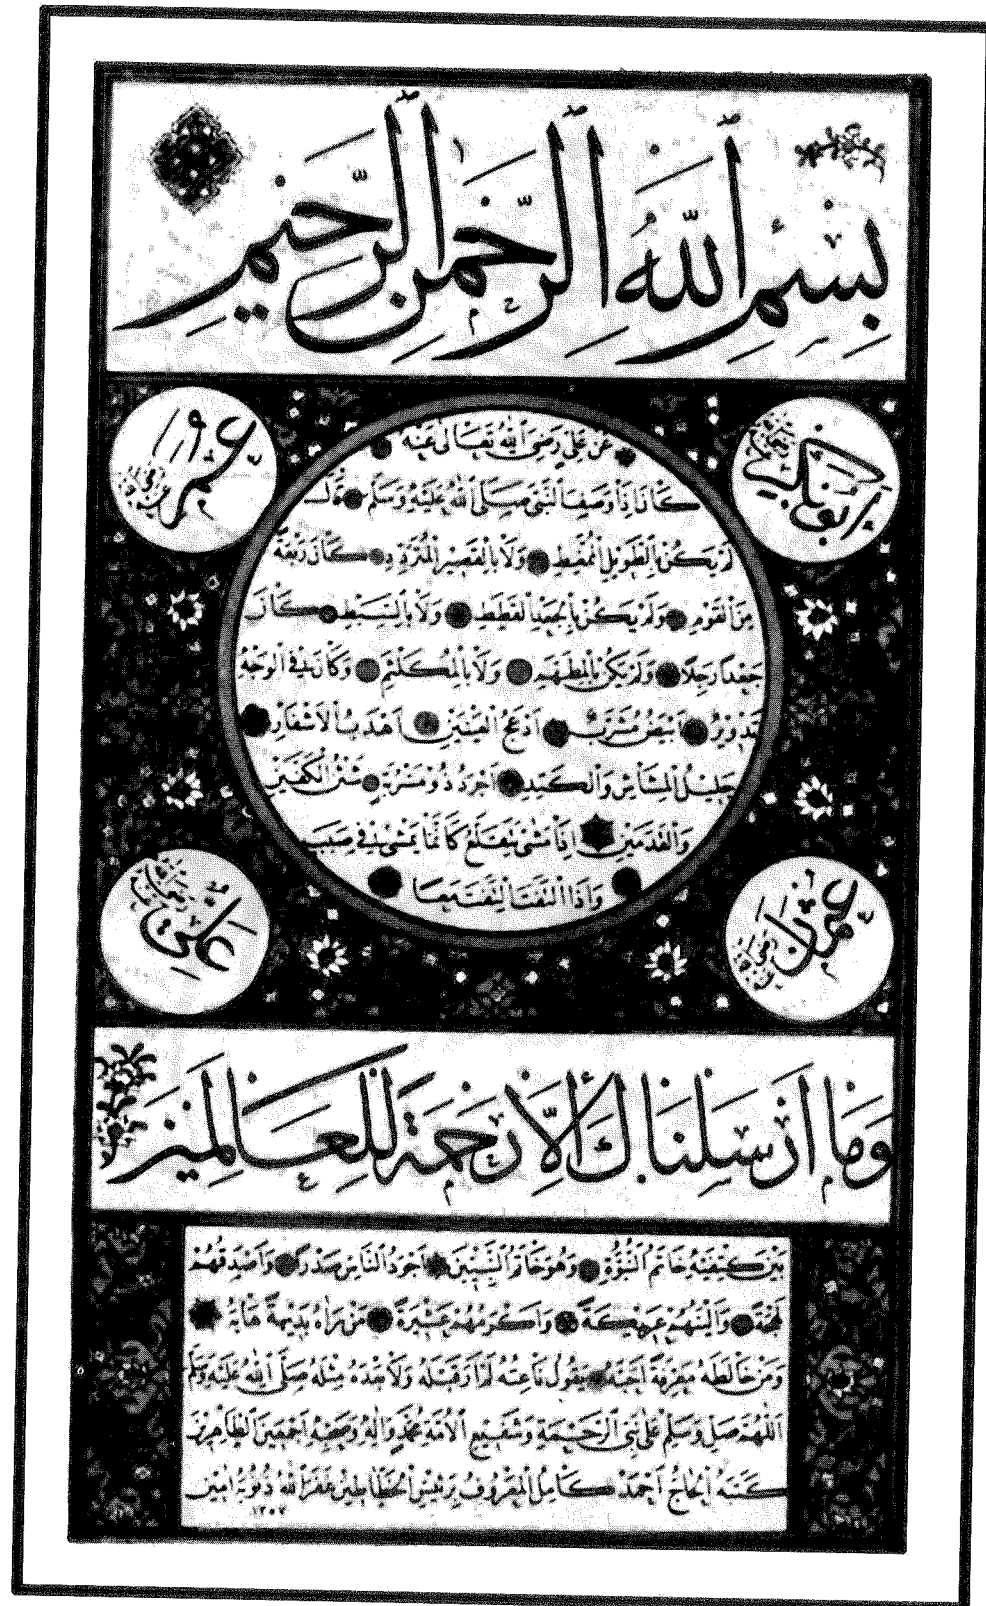 بسم الله الرحمن الرحيم
ابو بكر رضي الله عنه
عمر رضي الله عنه
عن علي رضي الله تعالى عنه
كان اذا وصف النبي صلى الله عليه وسلم قال
لم يكن بالطويل الممغط ولا بالقصير المتردد كان ربعة
من القوم ولم يكن بالجعد القطط ولا بالسبط كان
جعدا رجلا ولم يكن بالمطهم ولا بالمكلثم وكان في الوجه
تدوير ابيض مشرب ادعج العينين اهدب الاشفار
جليل المشاش والكتد اجرد ذو مسربة شثن الكفين
والقدمين اذا مشى يتقلع كانما يمشي في صبب
واذا التفت التفت معا
عثمن رضي الله عنه
علي رضي الله عنه
وما ارسلناك الا رحمة للعالمين
بين كتفيه خاتم النبوة وهو خاتم النبيين اجود الناس صدرا واصدقهم
لهجة والينهم عريكة واكرمهم عشيرة من رآه بديهة هابه
ومن خالطه معرفة احبه يقول ناعته لم ار قبله ولا بعده مثله صلى الله عليه وسلم
اللهم صل وسلم على نبي الرحمة وشفيع الامة محمد وآله وصحبه اجمعين الطاهرين
كتبه الحاج احمد كامل المعروف برئيس الخطاطين غفر الله ذنوبه امين
١٣٥٧